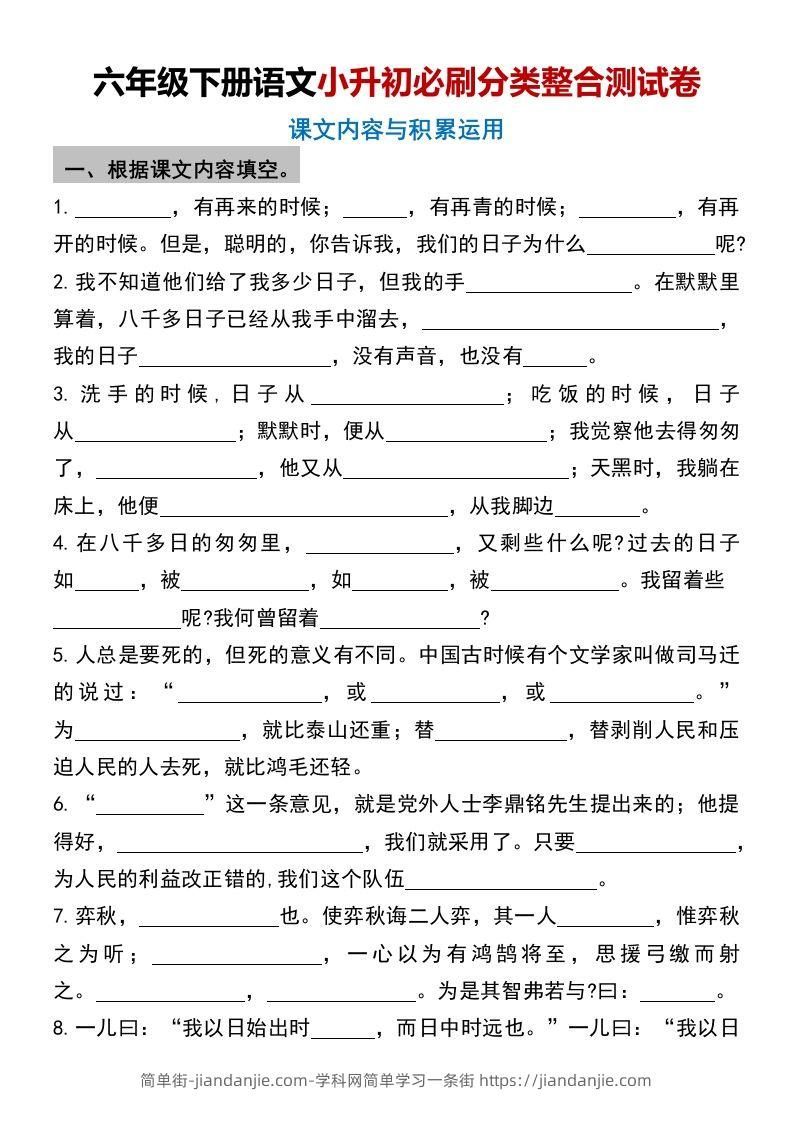 六年级下册语文小升初必刷分类整合测试卷
课文内容与积累运用
一、根据课文内容填空。
1. _________，有再来的时候；______，有再青的时候；_________，有再
开的时候。但是，聪明的，你告诉我，我们的日子为什么____________呢?
2. 我不知道他们给了我多少日子，但我的手_______________。在默默里
算着，八千多日子已经从我手中溜去，____________________________，
我的日子__________________，没有声音，也没有______。
3. 洗手的时候,日子从__________________；吃饭的时候，日子
从_______________；默默时，便从_______________；我觉察他去得匆匆
了，_______________，他又从_____________________；天黑时，我躺在
床上，他便___________________________，从我脚边________。
4. 在八千多日的匆匆里，______________，又剩些什么呢?过去的日子
如______，被____________，如_________，被____________。我留着些
____________呢?我何曾留着_______________?
5. 人总是要死的，但死的意义有不同。中国古时候有个文学家叫做司马迁
的说过：“______________，或____________，或______________。”
为_______________，就比泰山还重；替____________，替剥削人民和压
迫人民的人去死，就比鸿毛还轻。
6. “__________”这一条意见，就是党外人士李鼎铭先生提出来的；他提
得好，_______________________，我们就采用了。只要_______________，
为人民的利益改正错的,我们这个队伍__________________。
7. 弈秋，_____________也。使弈秋诲二人弈，其一人_________，惟弈秋
之为听；________________，一心以为有鸿鹄将至，思援弓缴而射
之。______________，______________。为是其智弗若与?曰：_______。
8. 一儿曰：“我以日始出时______，而日中时远也。”一儿曰：“我以日
简单街-jiandanjie.com-学科网简单学习一条街 https://jiandanjie.com